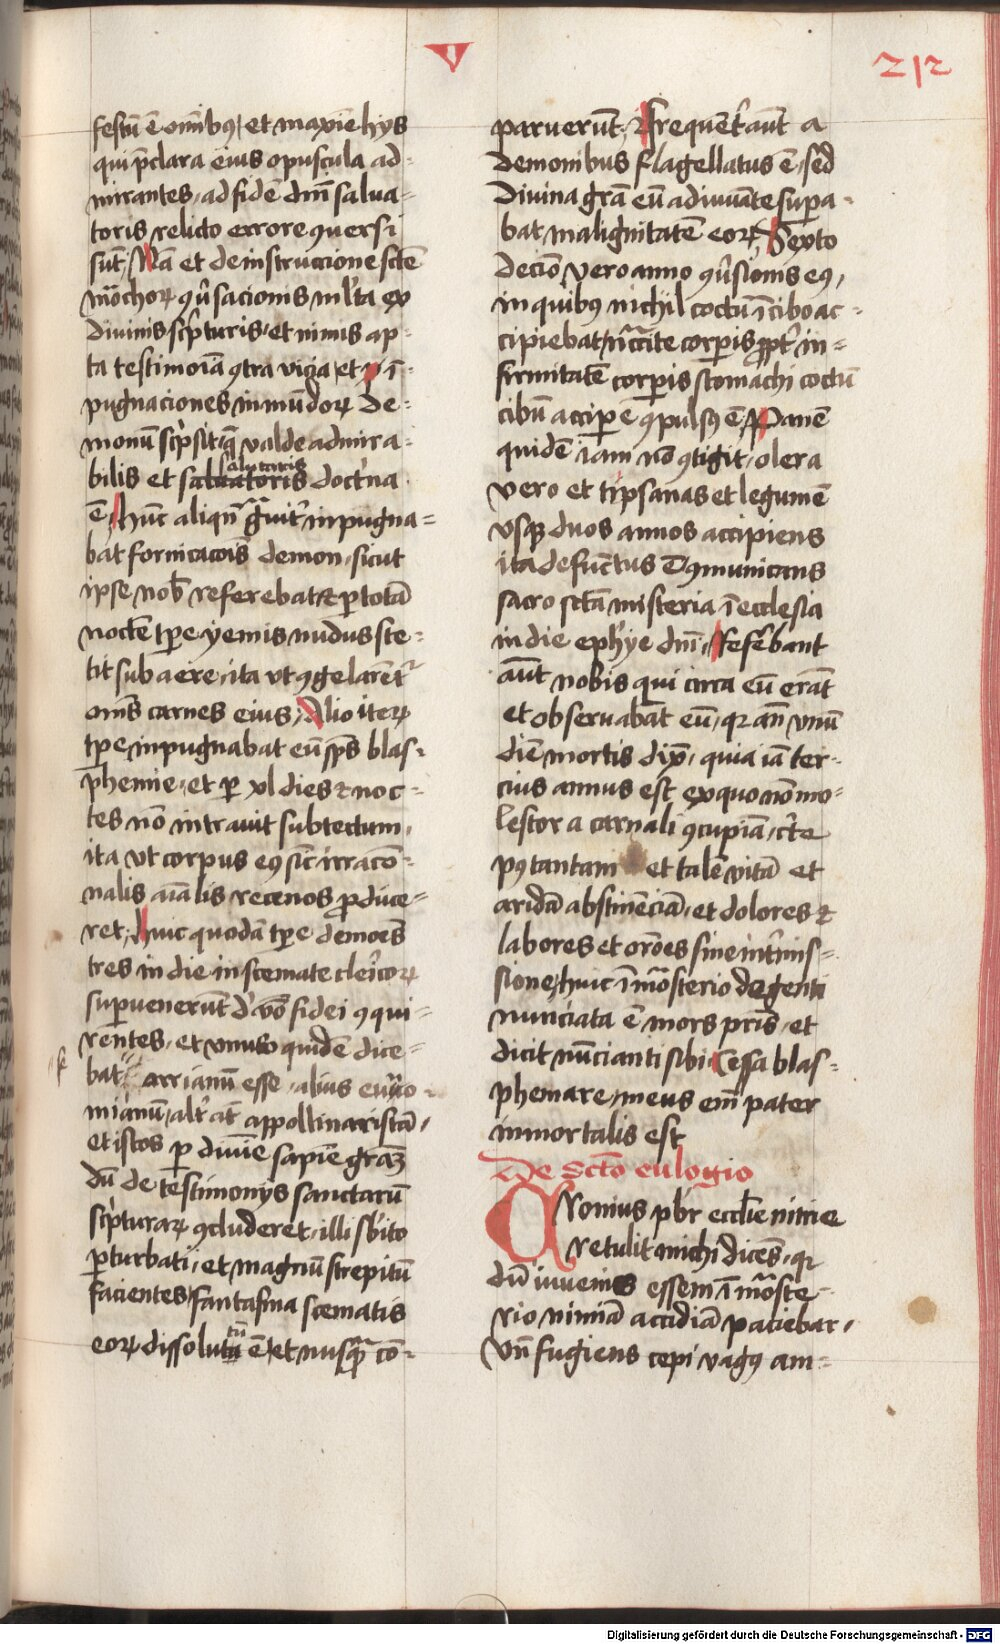 V
212
festū ē om̄ibꝰ / et maxīe hys
qui p̄clara eius opuscula ad-
mirantes, ad fidē dn̄i salua-
toris relicto errore ꝯuersi
sūt, Nā et de instruccione sctē
mōchoꝝ ꝯu̾sacionis ml̾ta ex
diuinis sc̾pturis, et nimis ap-
ta testimoīa ꝯtra vicia, et ī-
pugnaciones inmūdoꝝ de-
monū sc̾psit, q̄ valde admira-
bilis et saluatoris salutaris doct̾na
ē, Hūc aliqn̄ g̾uit̾ inpugna=
bat fornicacōis demon, sicut
ipse nob̄ referebat, et ꝑ totā
noctē tꝑe yemis nudus ste-
tit sub aere, ita vt ꝯgelarēt̾
om̄s carnes eius, Alio iteꝝ
tꝑe inpugnabat eū sp̄s blas-
phemie, et ꝑ xl dies et noc-
tes nō intrauit sub tectum,
ita vt corpus eꝰ sic̄ irracō-
nalis aīalis recenos ꝓduce-
ret, huic quodā tꝑe demoēs
tres in die in scemate cle̾icoꝝ
supuenerūt d̾ vō fidei ꝯqui-
rentes, et vnus quidē dice-
bat arrianū esse, alius euno-
mianū, alt̾ aūt appollinaristā,
et istos ꝑ diuīe sapīe graꝫ
dū de testimonys sanctarū
sc̾pturaꝝ ꝯcluderet, illi sb̾ito
ꝑturbati, et magnū strepitū
facientes, fantasma scematis
eoꝝ dissolutū ē, et nusq̄ cō-
paruerūt, Et frequent̾ aūt a
demonibus flagellatus ē, sed
Diuina gr̄a eū adiuuāte supa-
bat malignitatē eoꝝ, Sexto
decīo vero anno ꝯu̾sionis eꝰ,
in quibꝰ nichil coctū ī cibo ac-
cipiebat, nc̄cite corꝑis ꝓpt̾ in=
firmitatē corꝑis stomachi coctū
cibū accipe ꝯpulsꝰ ē, Panē
quidē iam nō ꝯtigit, olera
vero et tipsanas et legumē
vsqꝫ duos annos accipiens
ita defunctus ē ꝯmunicans
sacro sctā misteria ī ecclesia
in die eph̾ye dn̄i, Refe̾bant
aūt nobis qui circa eū erāt
et obseruabāt eū, qꝛ an̄ vnū
diē mortis dix̄, quia iā ter-
cius annus est ex quo nō mo-
lestor a carnali ꝯcupīa, c̾te
pꝰ tantam et talē vitā et
aridā abstinēciā, et dolores et
labores et orōes sine int̾mis-
sione, huic ī mōsterio degenti
nunciata ē mors pr̄is, et
dicit nūcianti sibi, Cessa blas-
phemare, meus em̄ pater
inmortalis est
De Sctō eulogio
Cronius pb̄r eccl̄ie nitrie
retulit michi dicēs, qꝛ
dū iuuenis essem ī mōste-
rio nimiā accidiā paciebar,
Vn̄ fugiens cepi vagꝰ am-
Digitalisierung gefördert durch die Deutsche Forschungsgemeinschaft - DFG